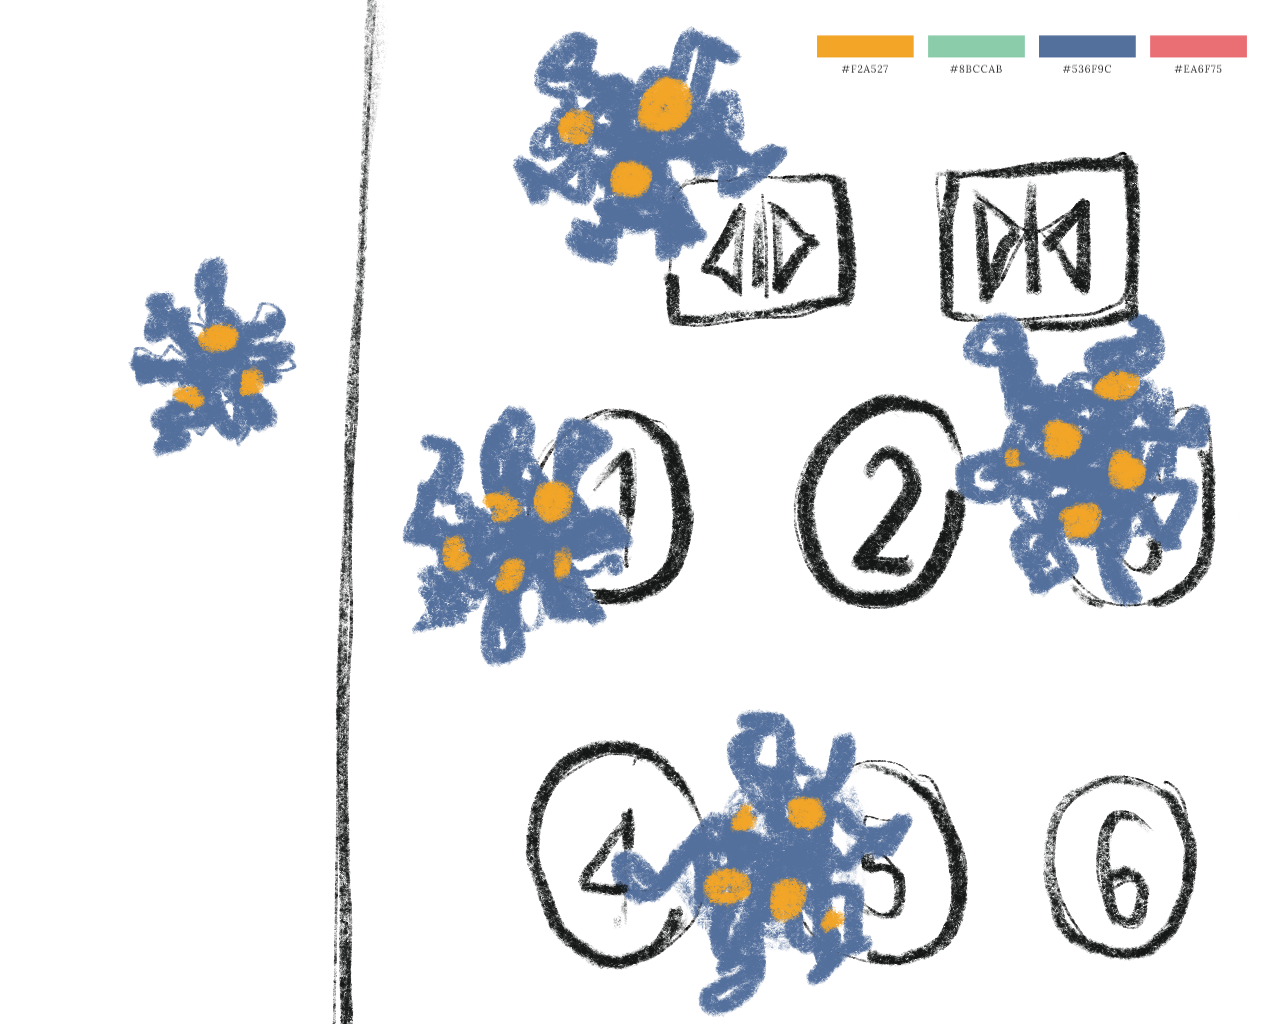 #F2A527 #8BCCAB #536F9C #EA6F75
1 2
4 5 6